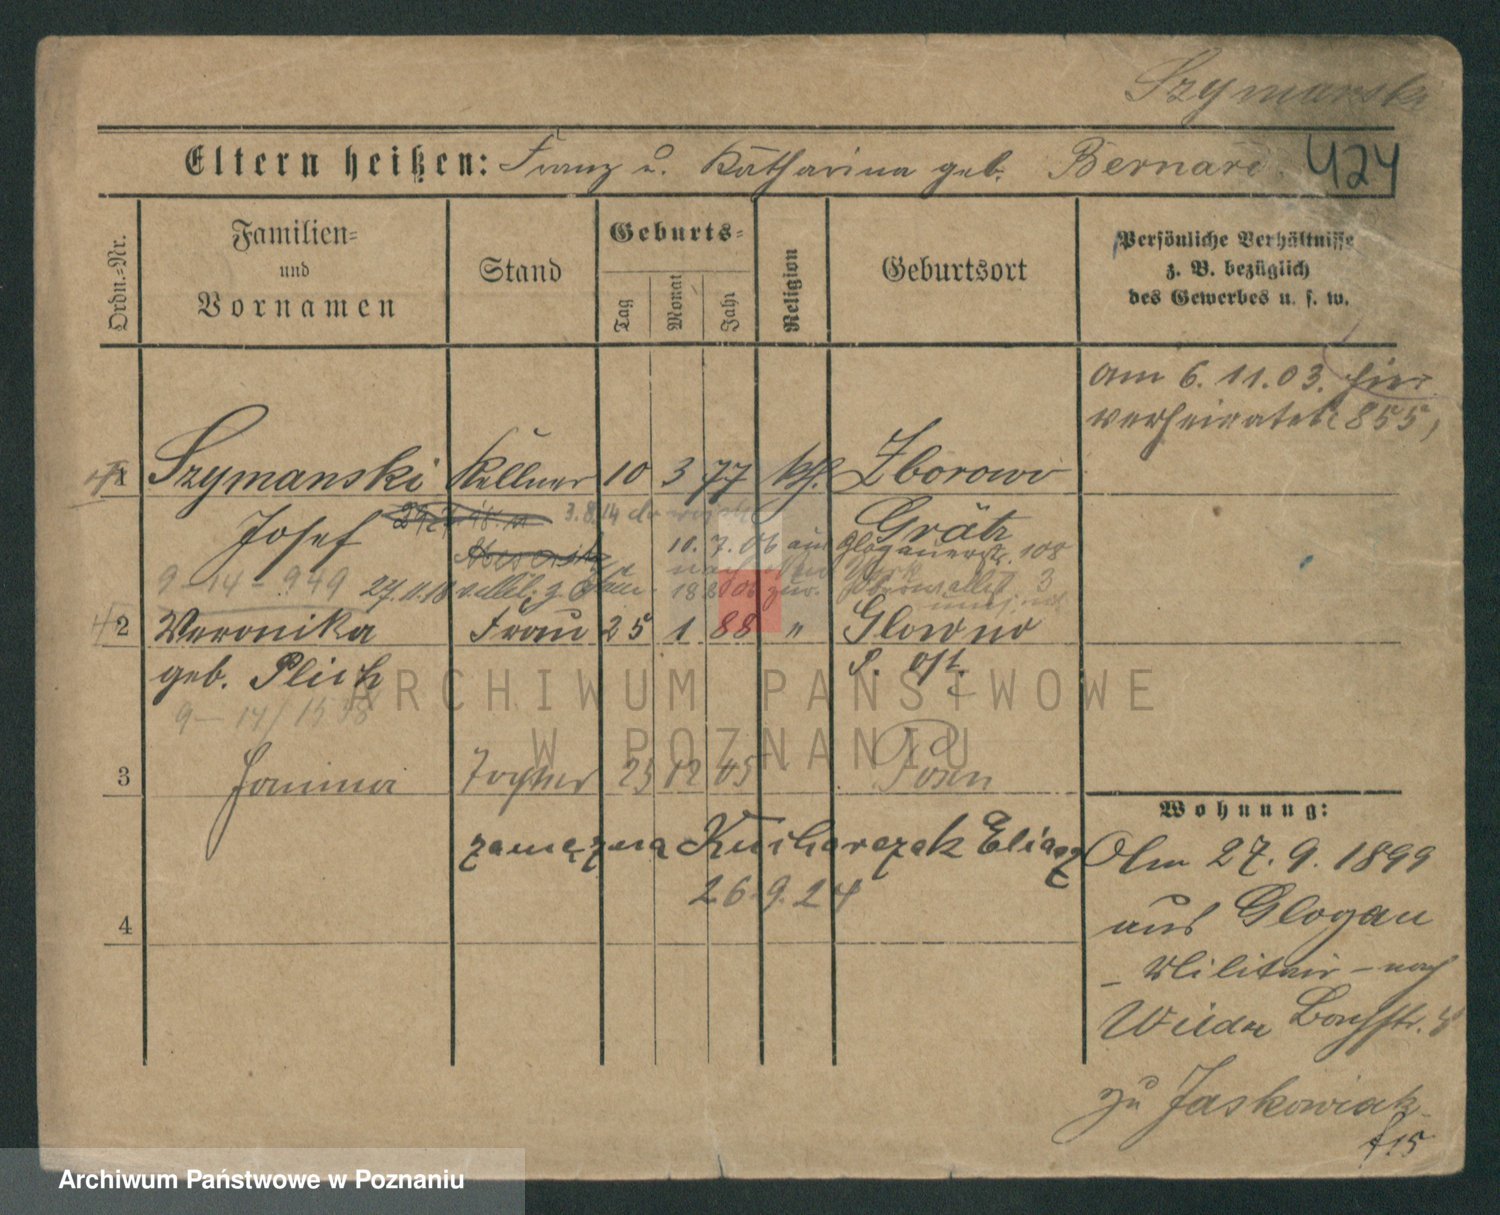 Szymanski
Eltern heißen: Franz u. Katharina geb. Bernard. 424
Ordn.=Nr.
Familien=
und
Vornamen
Stand
Geburts=
Tag
Monat
Jahr
Religion
Geburtsort
Persönliche Verhältnisse
z. B. bezüglich
des Gewerbes u. s. w.
am 6. 11. 03. hier
verheiratet (855)
1 Szymanski Kellner 10 3 77 kth. Zborowo
Josef 3.8.14 Grätz
10. 7. 06 aus Glogauerstr. 108
nach
9-14-949 27.11.18 v. Mil. z. Frau. 18 8 06 zur.
2 Veronika Frau 25 1 88 " Glowno
geb. Plich P. Ost.
9-14/1538
3 Janina Tochter 25 12 05 Posen
zamężna Kucharczak Eliasz
26.9.24
4
Wohnung:
Am 27. 9. 1899
aus Glogau
- Militair - nach
Wilda Bachstr.
zu Jaskowiak
f. 15
ARCHIWUM PAŃSTWOWE
W POZNANIU
Archiwum Państwowe w Poznaniu